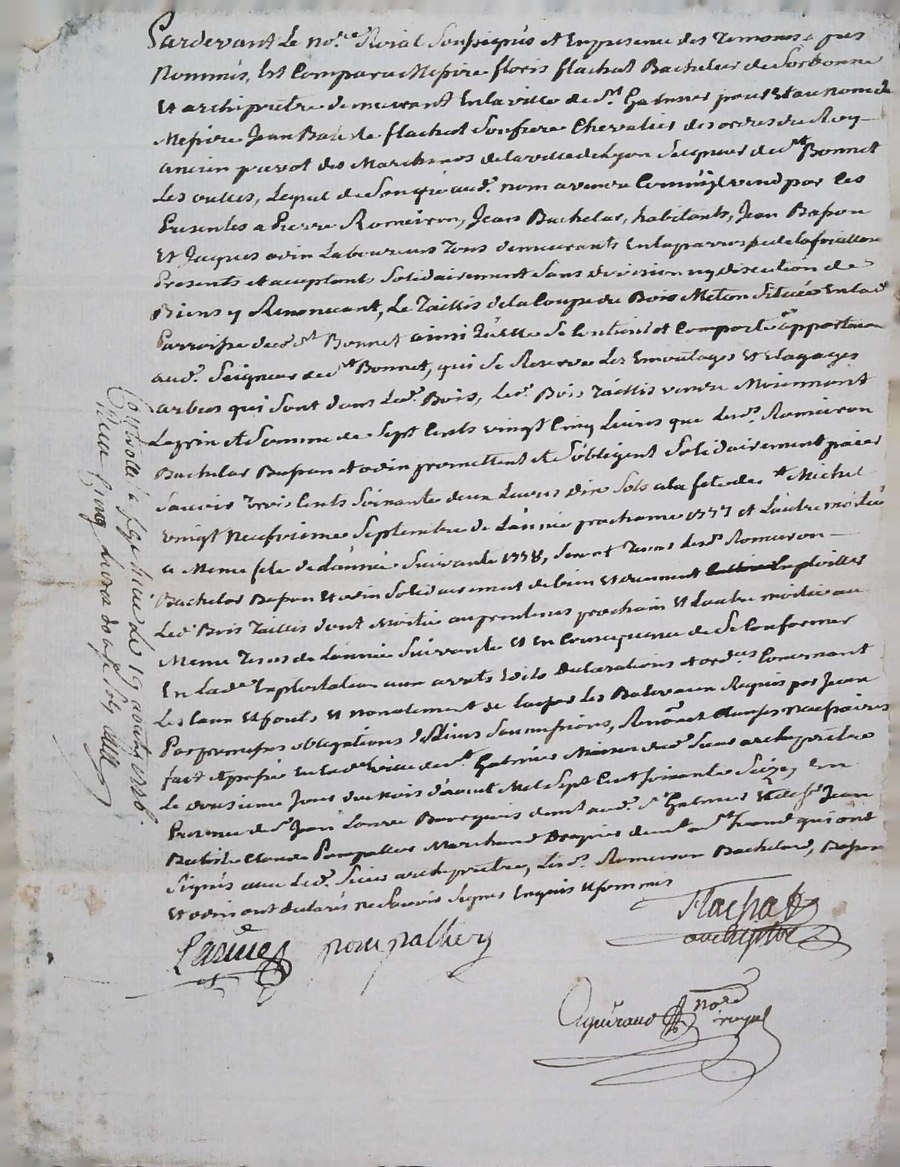 Pardevant Le no.re Roial Soussignés et En presence des Temoins cy pres
Nommés, Est Comparu Messire floris flachat Bachelier de Sorbonne
Et archiprêtre demeurant En la ville de St. Galmier pour Et au nom de
Messire Jean Bati.te flachat Son frere Chevalier des ordres du Roy
ancien prevot des Marchands de la ville de Lyon Seigneur de St. Bonnet
Les oulles, Lequel de Son gré aud. nom a vendu Comme il vend par Ces
Presentes a Pierre Romeiron, Jean Bachelar, habitants, Jean Basson
Et Jacques odin Laboureurs Tous demeurants En la parroisse de
Presents et acceptants Solidairement Sans division ny discution de
Biens y Renonceant, Le Taillis de la Coupe du Bois Méton Située En lad.
Parroisse de St. Bonnet ainsi qu'elle Se Contient et Comporte appartenan
aud. Seigneur de St. Bonnet, qui Se Reserve Les Emoutages Et Elagages
arbres qui Sont dans Led. Bois, Led. Bois Taillis vendu Moiennant
Le prix et Somme de Sept Cents vingt Cinq Livres que Lesd. Romeiron
Bachelar Basson et odin promettent et S'obligent Solidairement paier
Sçavoir Trois Cents Soixante deux Livres dix Sols a la fête de St. Michel
vingt Neufvieme Septembre de L'année prochaine 1757 et L'autre moitié
a Meme fete de L'année Suivante 1758, Seront Tenus Lesd. Romeiron
Bachelar Basson Et odin Solidairement de bien Et duement Exploitter
Led. Bois Taillis dont Moitié au printems prochain Et L'autre moitié au
Meme Tems de L'année Suivante Et En Consequence de Se Conformer
En Lad. Exploitation aux arrets Edits Declarations et ord.ces Concernant
Les Eaux Et forêts Et nottament de Laisser Les Baliveaux Requis par Jean
Par promesses obligations Soumissions, Renon.t Clauses Necessaires
fait et passé En Lad. ville de St. Galmier Maison dud. Sieur archiprêtre
Le Jour du Mois d'aoust Mil Sept Cent Six En
Presence de Sr. Jean Bourgeois dem.t aud. St. Galmier Et de Sr. Jean
Batiste Claude Pompallier Marchand dem.t qui ont
Signés avec Led. Sieur archiprêtre, Lesd. Romeiron Bachelard, Basson
Et odin ont declarés ne Sçavoir Signer Enquis Et sommés
Flachat
archiptre
pompallier
nore
royal
Controllé a St. galmier Le 19 aoust 1756.
Reçu Cinq Livres